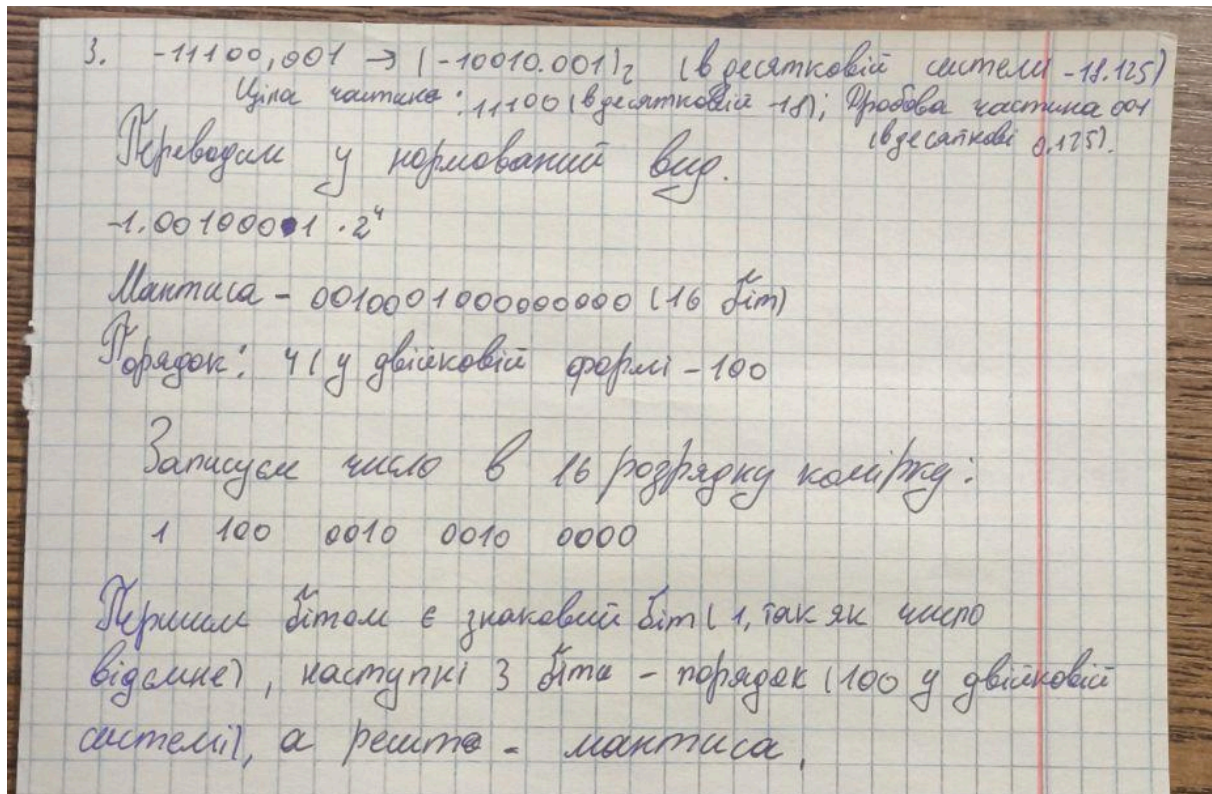 3. -11100,001 → (-10010.001)₂ (в десятковій системи -18.125)
Ціла частина: 11100 (в десятковій -18); Дробова частина 001
(в десаткові 0.125).
Переводим у нормований вид.
-1.0010001 · 2⁴
Мантиса - 0010001000000000 (16 біт)
Порядок: 4 (у двійковій формі - 100
Записуєм число в 16 розрядку комірку:
1 100 0010 0010 0000
Першим бітом є знаковий біт (1, так як число
відємне), наступні 3 біта - порядок (100 у двійковій
системі), а решта - мантиса.